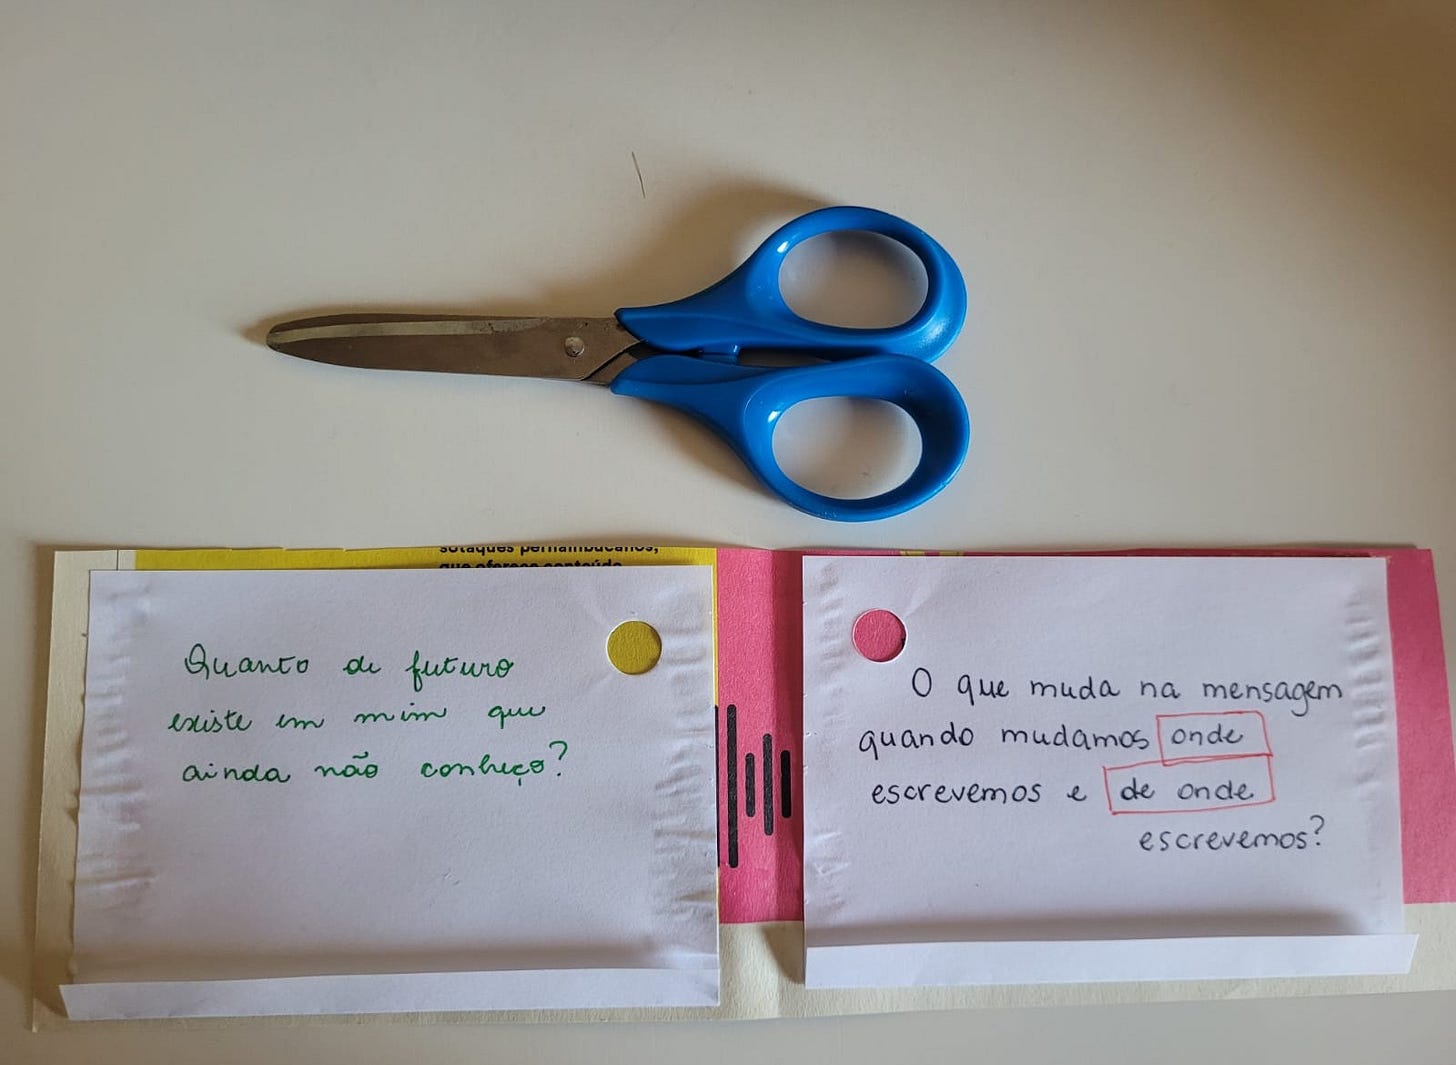 sotaques pernambucanos,
que oferece conteúdo
Quanto de futuro
existe em mim que
ainda não conheço?
O que muda na mensagem
quando mudamos onde
escrevemos e de onde
escrevemos?